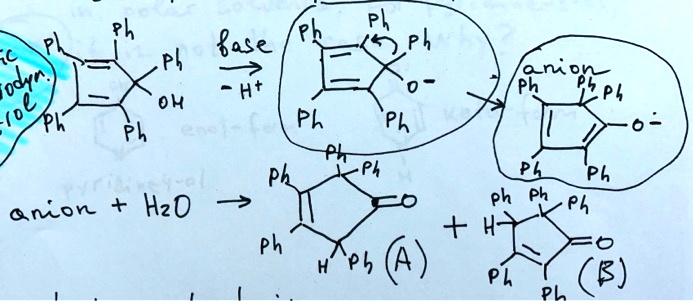 ic
rodyn.
rol
Ph Ph Ph OH Ph Ph
base
- H+
Ph Ph Ph O- Ph Ph
anion
Ph Ph Ph O- Ph Ph
anion + H2O → Ph Ph Ph =O Ph H Ph (A) + Ph Ph Ph H =O Ph Ph (B)